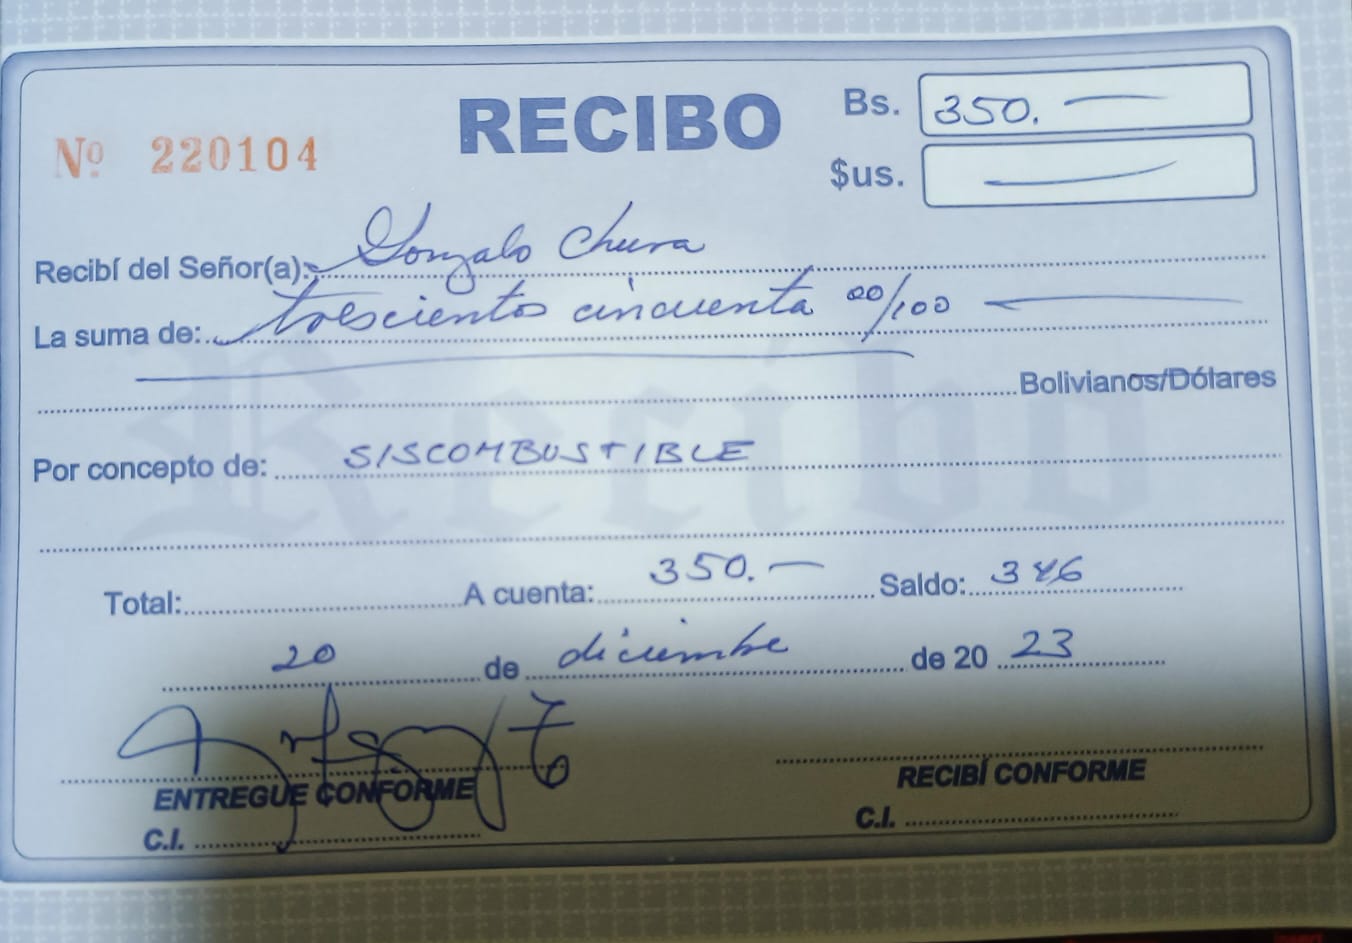 RECIBO
Bs. 350.
Nº 220104
$us.
Recibí del Señor(a): Gonzalo Chura
La suma de: trescientos cincuenta 00/100
Bolivianos/Dólares
Por concepto de: SISCOMBUSTIBLE
Total: A cuenta: 350.— Saldo: 346
20 de diciembre de 20 23
ENTREGUE CONFORME
RECIBÍ CONFORME
C.I.
C.I.